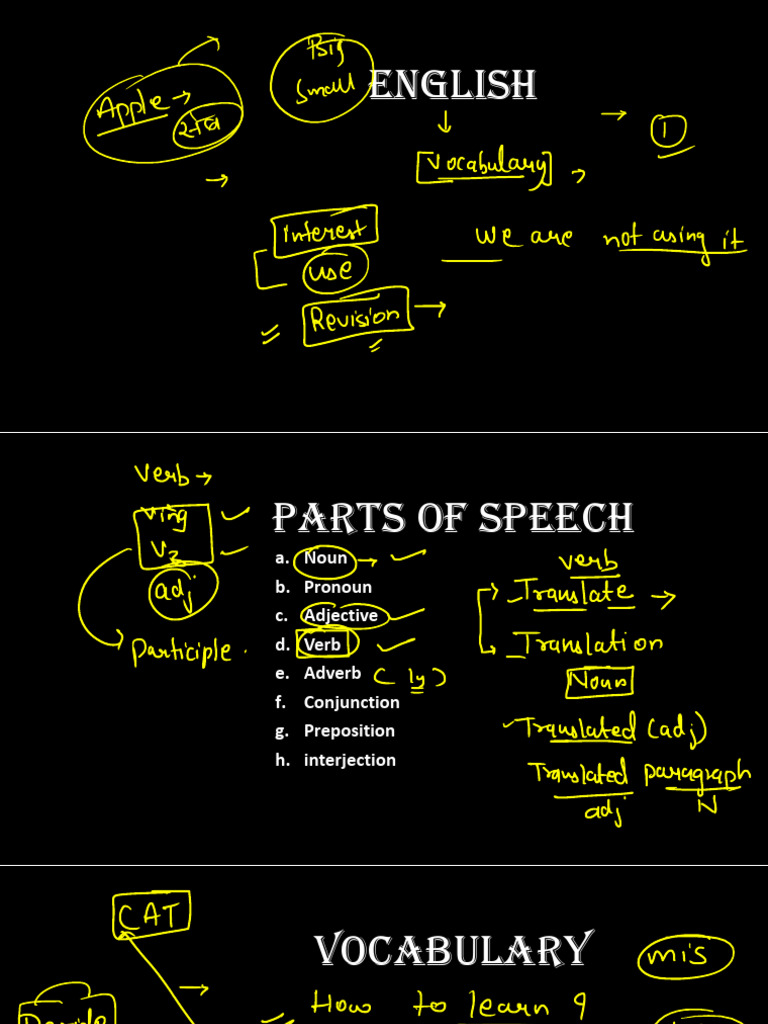 Big
Small
ENGLISH
Apple →
→
1
[Vocabulary]
→
Interest
we are not using it
use
Revision →
Verb →
Ving
V3
adj
Participle
PARTS OF SPEECH
a. Noun →
b. Pronoun
c. Adjective
d. Verb
e. Adverb (ly)
f. Conjunction
g. Preposition
h. interjection
verb
Translate →
Translation
Noun
Translated (adj)
Translated paragraph
adj N
CAT
VOCABULARY
mis
→
How to learn ?